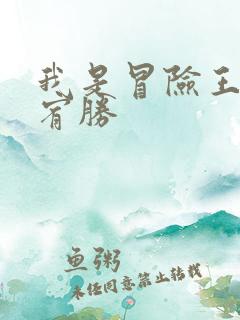 我是冒險王
崀勝
鱼粥
未经同意禁止转载